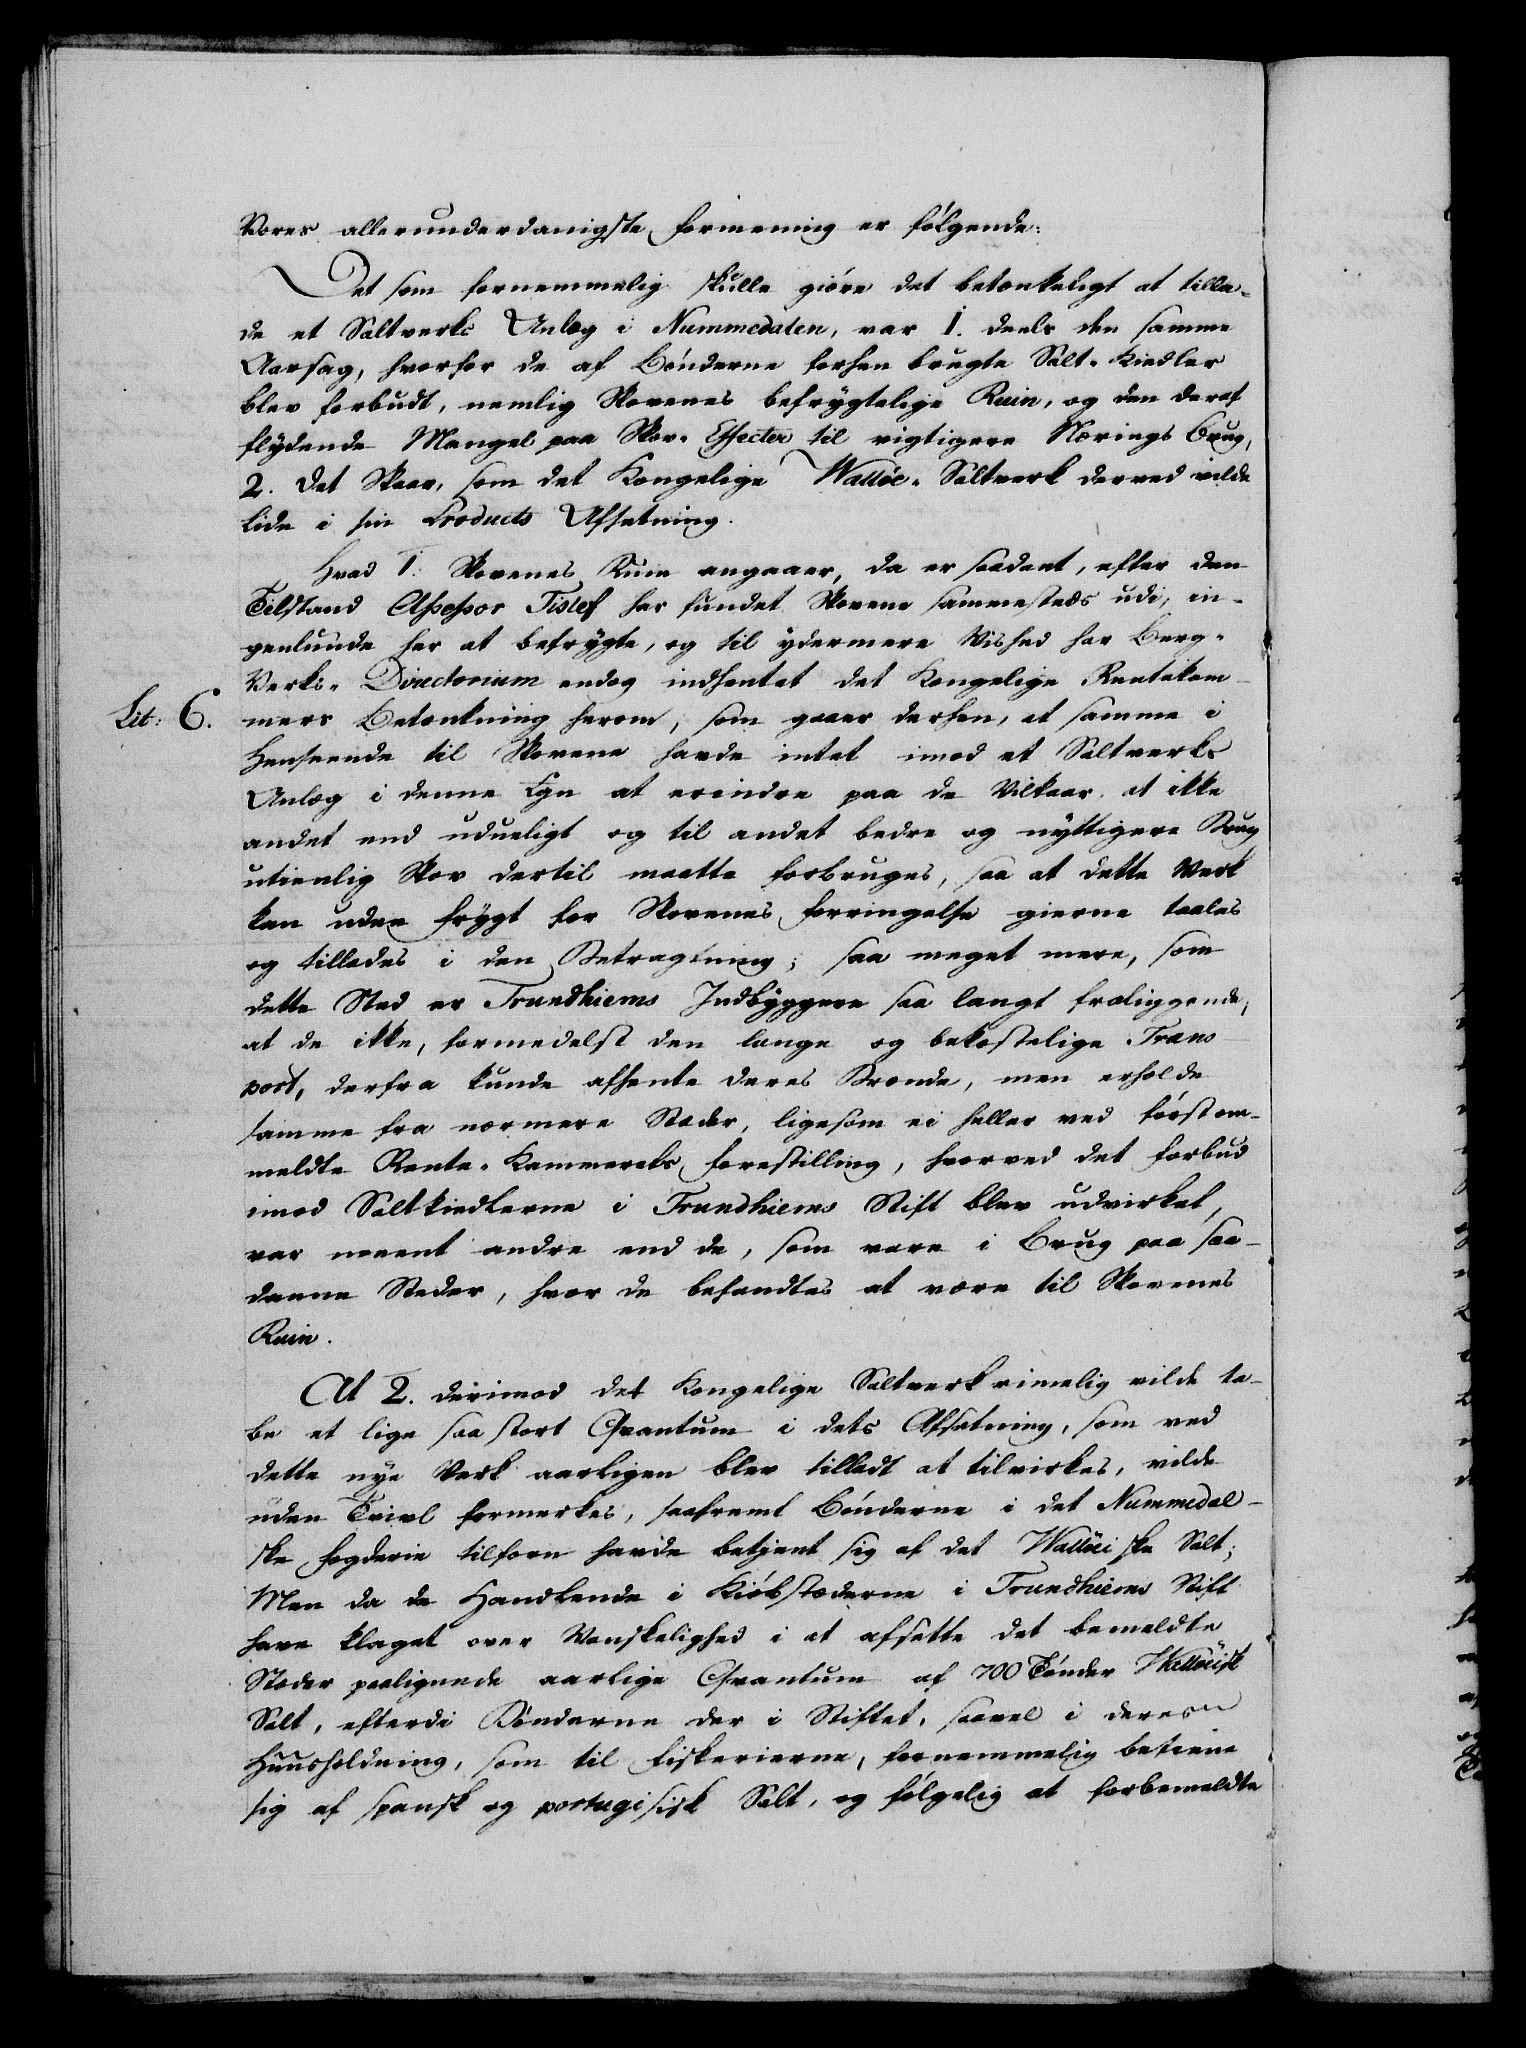 Vores allerunderdanigste formening er følgende:
Det som fornemmelig skulle giøre det betænkeligt at tilla-
de et Saltverks Anlæg i Nummedalen, var 1. deels den samme
Aarsag, hvorfor de af Bønderne forhen brugte Salt-Kiedler
blev forbudt, nemlig Skovenes befrygtelige Ruin, og den deraf
flydende Mangel paa Skov-Effecter til vigtigere Nærings Brug,
2. det Skaar, som det Kongelige Walløe-Saltverk derved vilde
lide i sin Products Afsetning.
Hvad 1. Skovenes Ruin angaaer, da er saadant, efter den
Tilstand Assessor Tislef har fundet Skovene sammesteds udi, in-
genlunde her at befrygte, og til ydermere Vished har Berg-
Verks-Directorium endog indhentet det Kongelige Rentekam-
Lit: 6.
mers Betænkning herom, som gaaer derhen, at samme i
Henseende til Skovene havde intet imod et Saltverks
Anlæg i denne Egn at erindre paa de Vilkaar, at ikke
andet end udueligt og til andet bedre og nyttigere Brug
utienlig Skov dertil maatte forbruges, saa at dette Verk
kan uden frygt for Skovenes forringelse gierne taales
og tillades i den Betragtning; saa meget mere, som
dette Sted er Trundhiems Indbyggere saa langt fraliggende,
at de ikke, formedelst den lange og bekostelige Trans
port, derfra kunde afhente deres Brænde, men erholde
samme fra nærmere Stæder, ligesom ei heller ved først om-
meldte Rente-Kammerets forestilling, hvorved det forbud
imod Saltkiedlerne i Trundhiems Stift blev udvirket,
var meent andre end de, som vare i Brug paa saa-
danne Steder, hvor de befandtes at være til Skovenes
Ruin.
At 2. derimod det Kongelige Saltverk rimelig vilde ta-
be et lige saa stort Qvantum i dets Afsætning, som ved
dette nye Verk aarligen blev tilladt at tilvirkes, vilde
uden Tvivl formerkes, saafremt Bønderne i det Nummedal-
ske fogderie tilforn havde betjent sig af det Walløeiske Salt;
Men da de Handlende i Kiøbstæderne i Trundhiems Stift
have klaget over Vanskelighed i at afsette det bemeldte
Stæder paalignede aarlige Qvantum af 700 Tønder Walløeisk
Salt, efterdi Bønderne der i Stiftet, saavel i deres
Huusholdning, som til fiskerierne, fornemmelig betiene
sig af spansk og portugisisk Salt, og følgelig at forbemeldte